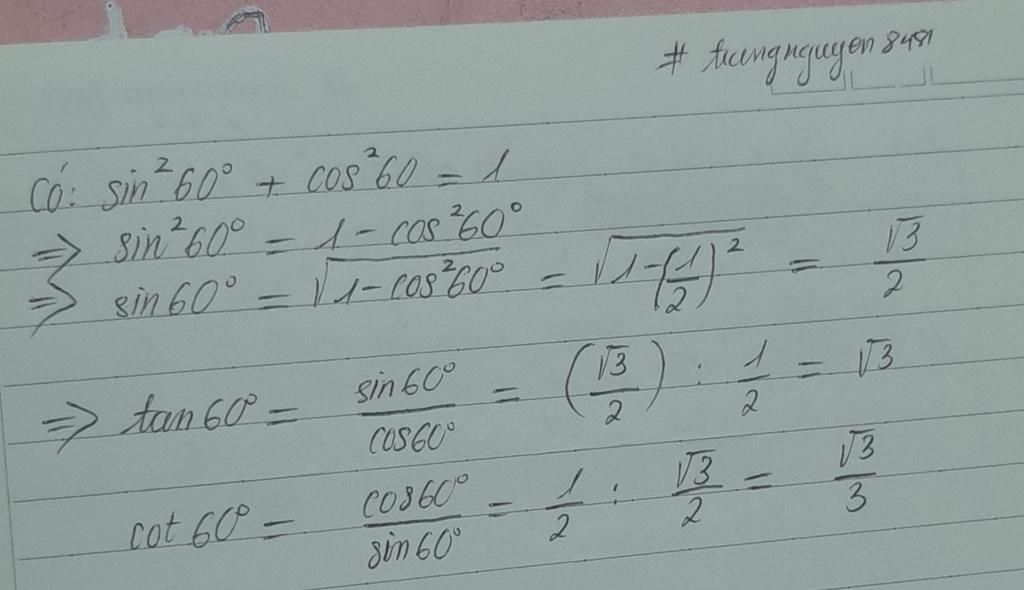 # trungnguyen8481
Có: sin²60° + cos²60 = 1
=> sin²60° = 1 - cos²60°
=> sin60° = √(1 - cos²60°) = √(1 - (1/2)²) = √3/2
=> tan60° = sin60°/cos60° = (√3/2) : 1/2 = √3
cot60° = cos60°/sin60° = 1/2 : √3/2 = √3/3